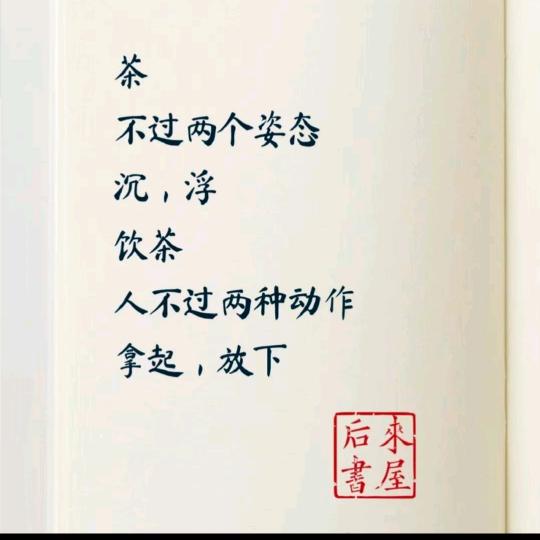 茶
不过两个姿态
沉，浮
饮茶
人不过两种动作
拿起，放下
后来
書屋